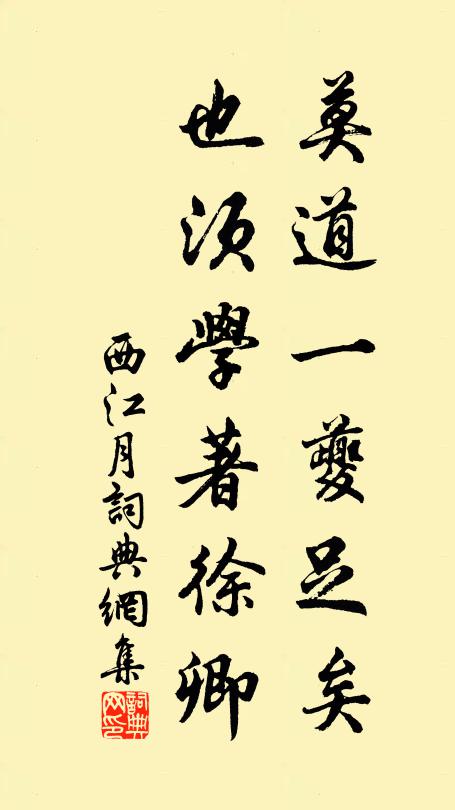 莫道一夔足矣
也須學著徐卿
西江月詞典網集
詞典网印